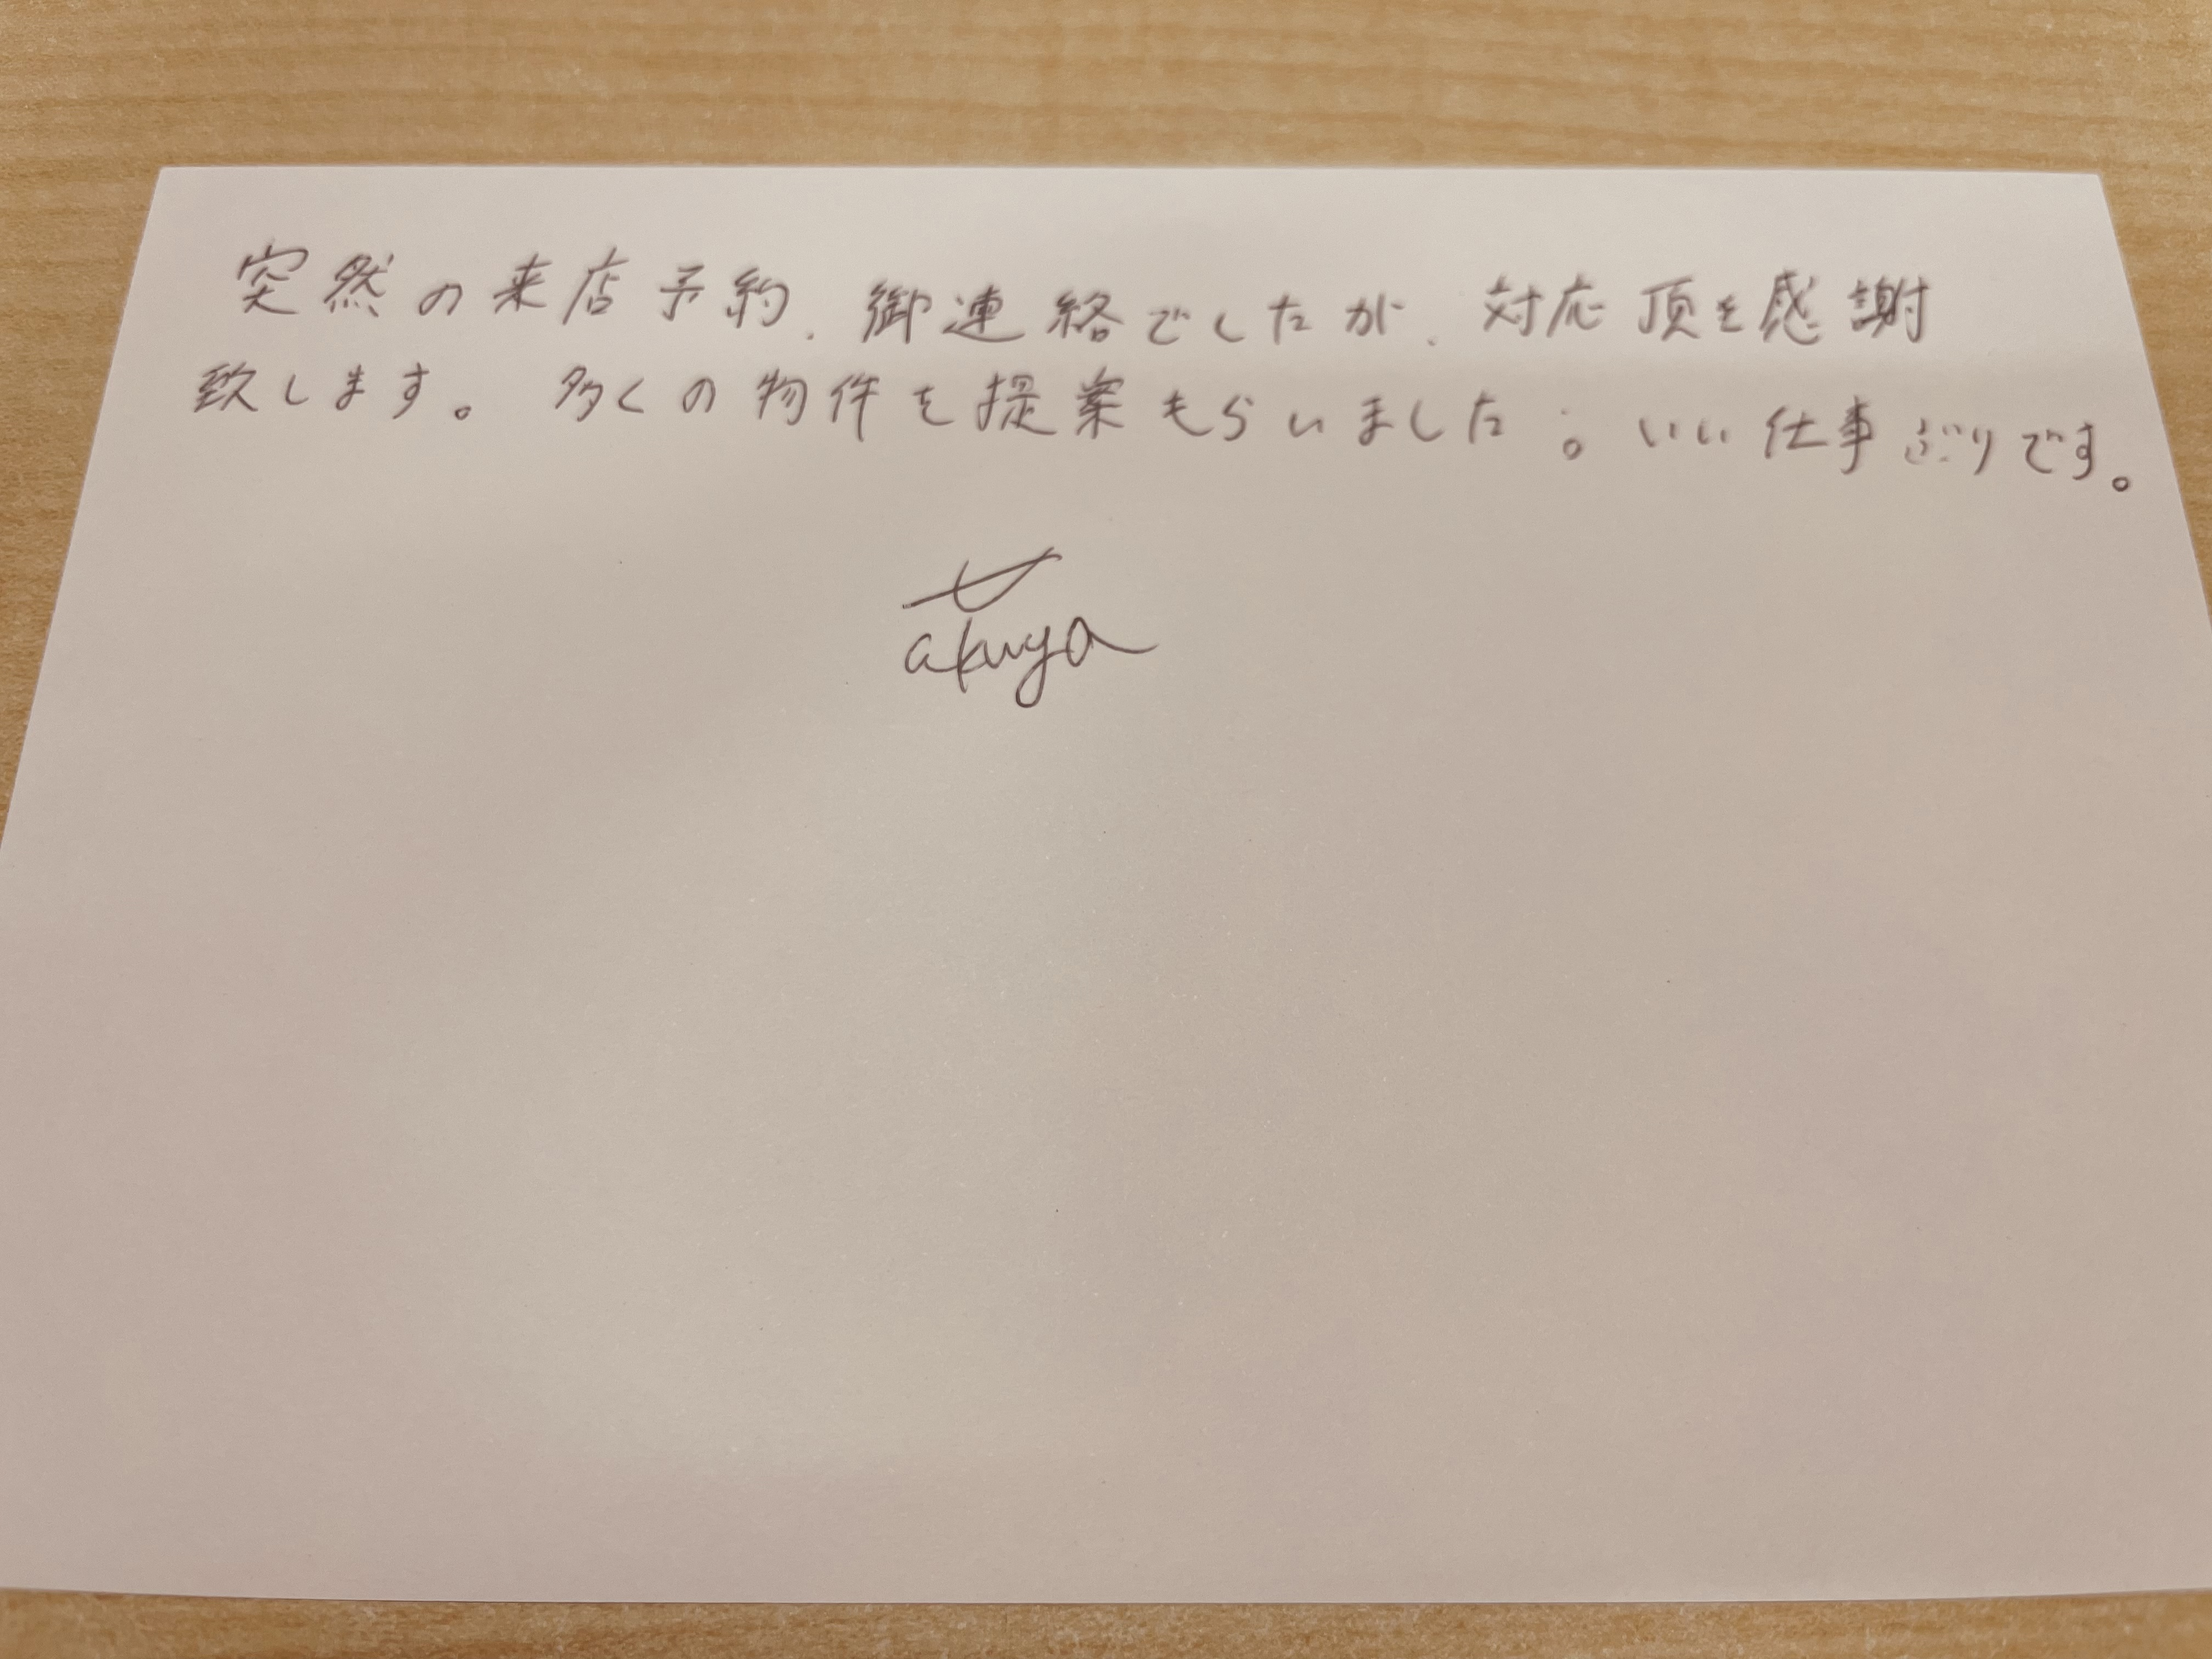 突然の来店予約、御連絡でしたが、対応頂き感謝
致します。多くの物件を提案もらいました。いい仕事ぶりです。
Takuya